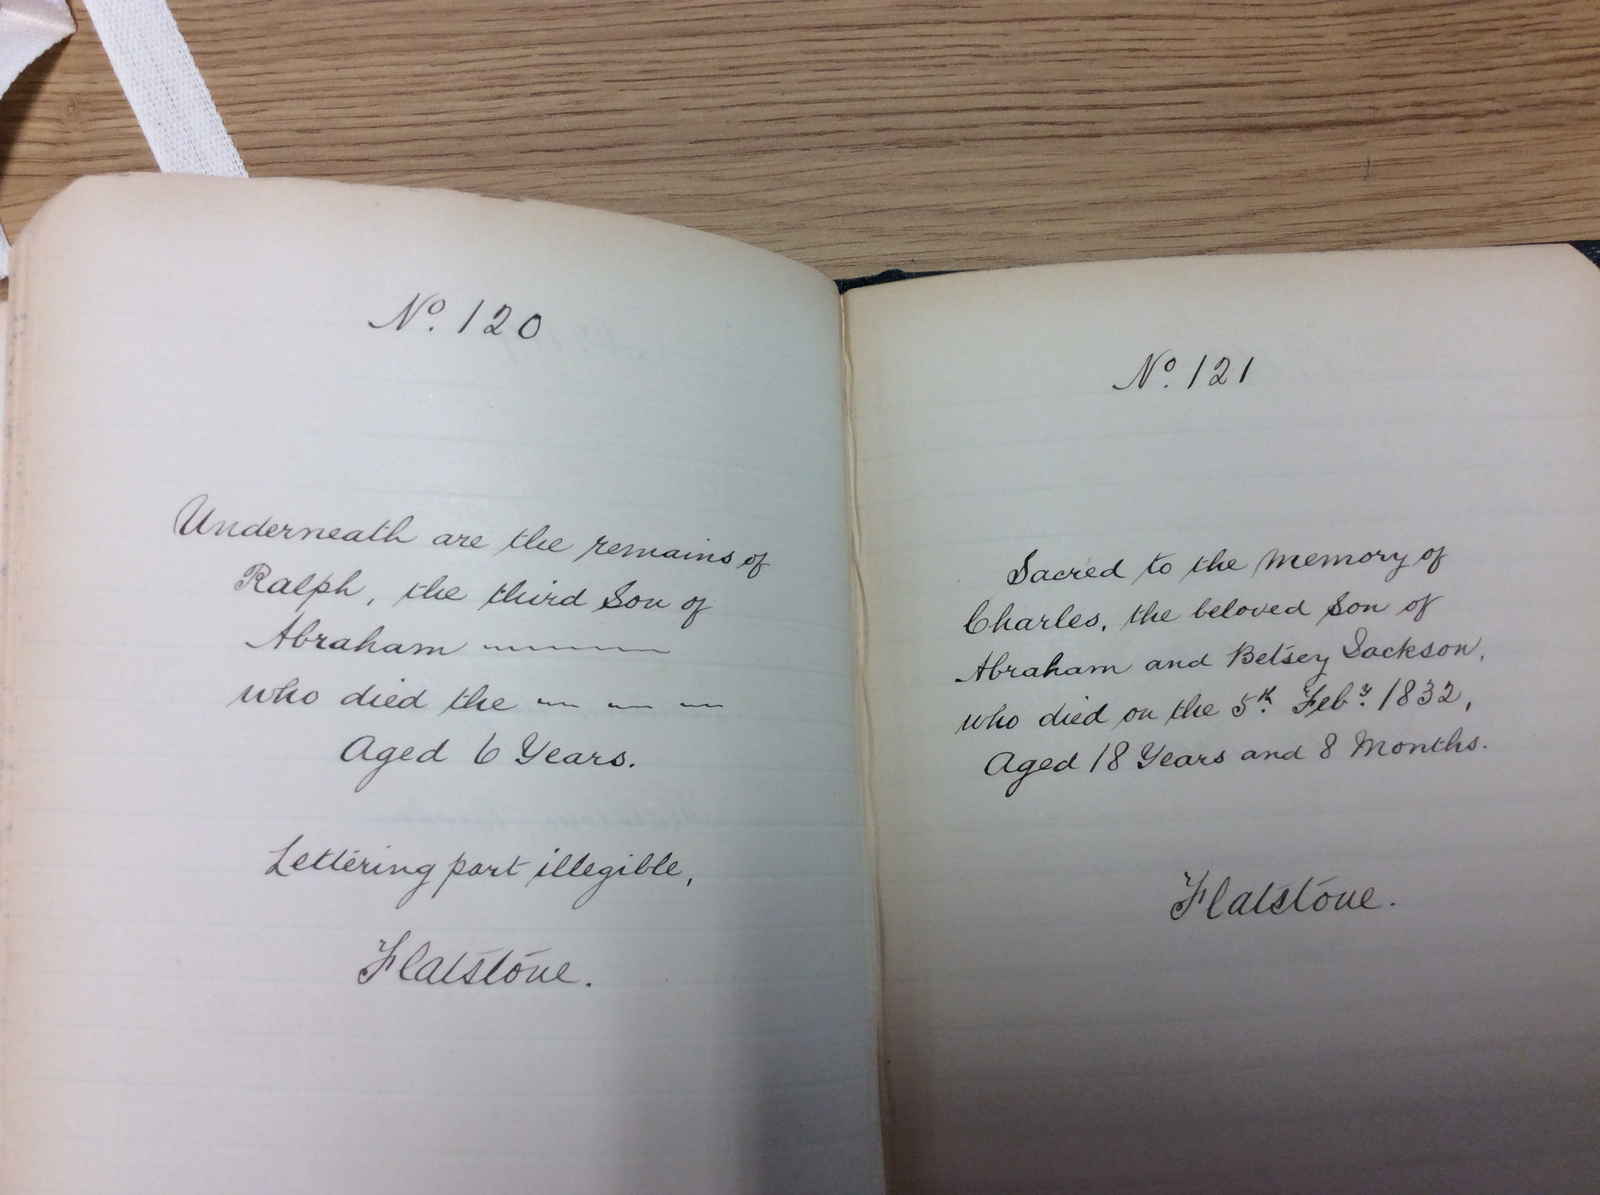 No. 120
Underneath are the remains of
Ralph, the third Son of
Abraham ~~~~~
who died the ~ ~ ~
Aged 6 Years.
Lettering part illegible,
Flatstone.
No. 121
Sacred to the Memory of
Charles, the beloved Son of
Abraham and Betsey Jackson,
who died on the 5th. Feby. 1832,
Aged 18 Years and 8 Months.
Flatstone.